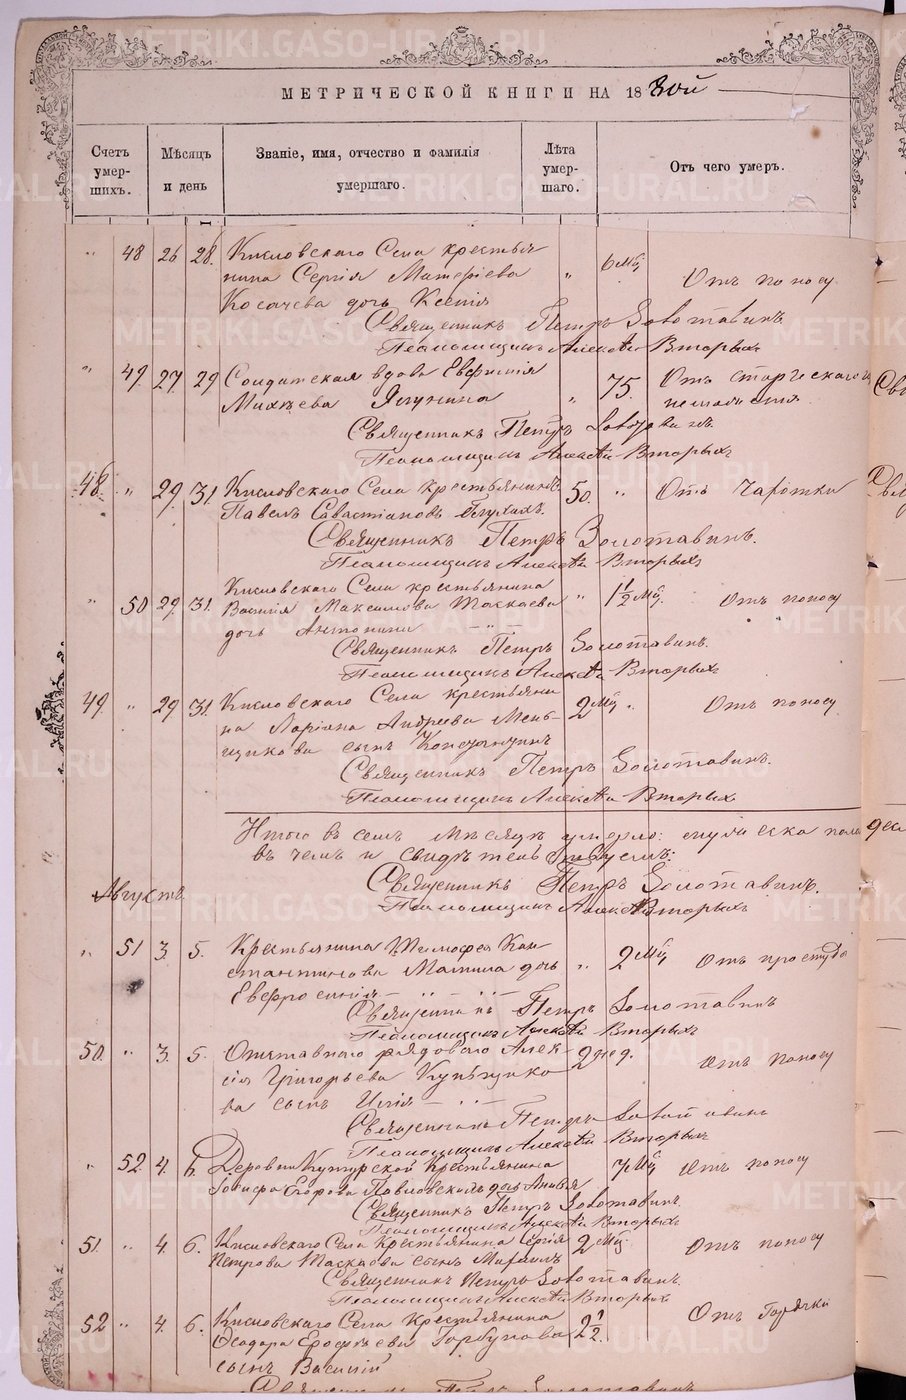 МЕТРИЧЕСКОЙ КНИГИ НА 18 80й
Счетъ умер-шихъ.
Мѣсяцъ и день
Званіе, имя, отчество и фамилія умершаго.
Лѣта умер-шаго.
Отъ чего умеръ.
" 48 26 28. Кисловскаго Села крестья " 6 мц
нина Сергія Отъ поносу
Косачева дочь Ксенія
Священникъ Петръ Золотавинъ
Псаломщикъ Алексѣй Вторыхъ
" 49 27 29 Солдатская вдова " 75. Отъ старческаго
Михѣева Ягунина
Священникъ Петръ
Псаломщикъ Алексѣй Вторыхъ
48. " 29. 31. Кисловскаго Села крестьянинъ 50. " Отъ чахотки
Павелъ Савастіановъ
Священникъ Петръ Золотавинъ.
Псаломщикъ Алексѣй Вторыхъ
" 50 29 31. Кисловскаго Села крестьянина " 1 1/2 мц. Отъ поносу
Василія Максимова Таскаева
дочь Антонина
Священникъ Петръ Золотавинъ.
Псаломщикъ Алексѣй Вторыхъ
49. " 29 31. Кисловскаго Села крестьяни 2 мц " Отъ поносу
на Ларіона Андреева Мень-
щикова сынъ
Священникъ Петръ Золотавинъ.
Псаломщикъ Алексѣй Вторыхъ
Итого въ семъ мѣсяцѣ умерло: мужеска пола
въ чемъ и свидѣтельствуемъ:
Священникъ Петръ Золотавинъ.
Августъ
Псаломщикъ Алексѣй Вторыхъ
" 51 3. 5. Крестьянина Тимофея Кон " 2 мц Отъ простуды
стантинова дочь
Евфросинія
Священникъ Петръ Золотавинъ
Псаломщикъ Алексѣй Вторыхъ
50. " 3. 5. Отставнаго рядоваго Алек- 2 нед. Отъ поносу
сія Григорьева
ва сынъ Илія
Священникъ Петръ
Псаломщикъ Алексѣй Вторыхъ
" 52. 4. 6. Деревни крестьянина 7 мц Отъ поносу
Егорова дочь
Священникъ Петръ Золотавинъ.
Псаломщикъ Алексѣй Вторыхъ
51. " 4. 6. Кисловскаго Села крестьянина Сергія 2 мц Отъ поносу
Петрова Таскаева сынъ Михаилъ
Священникъ Петръ Золотавинъ.
Псаломщикъ Алексѣй Вторыхъ
52 " 4. 6. Кисловскаго Села крестьянина 2 1/2. Отъ Горячки
Ѳеодора Ерофѣева Горбунова
сынъ Василій
Священникъ Петръ Золотавинъ
METRIKI.GASO-URAL.RU